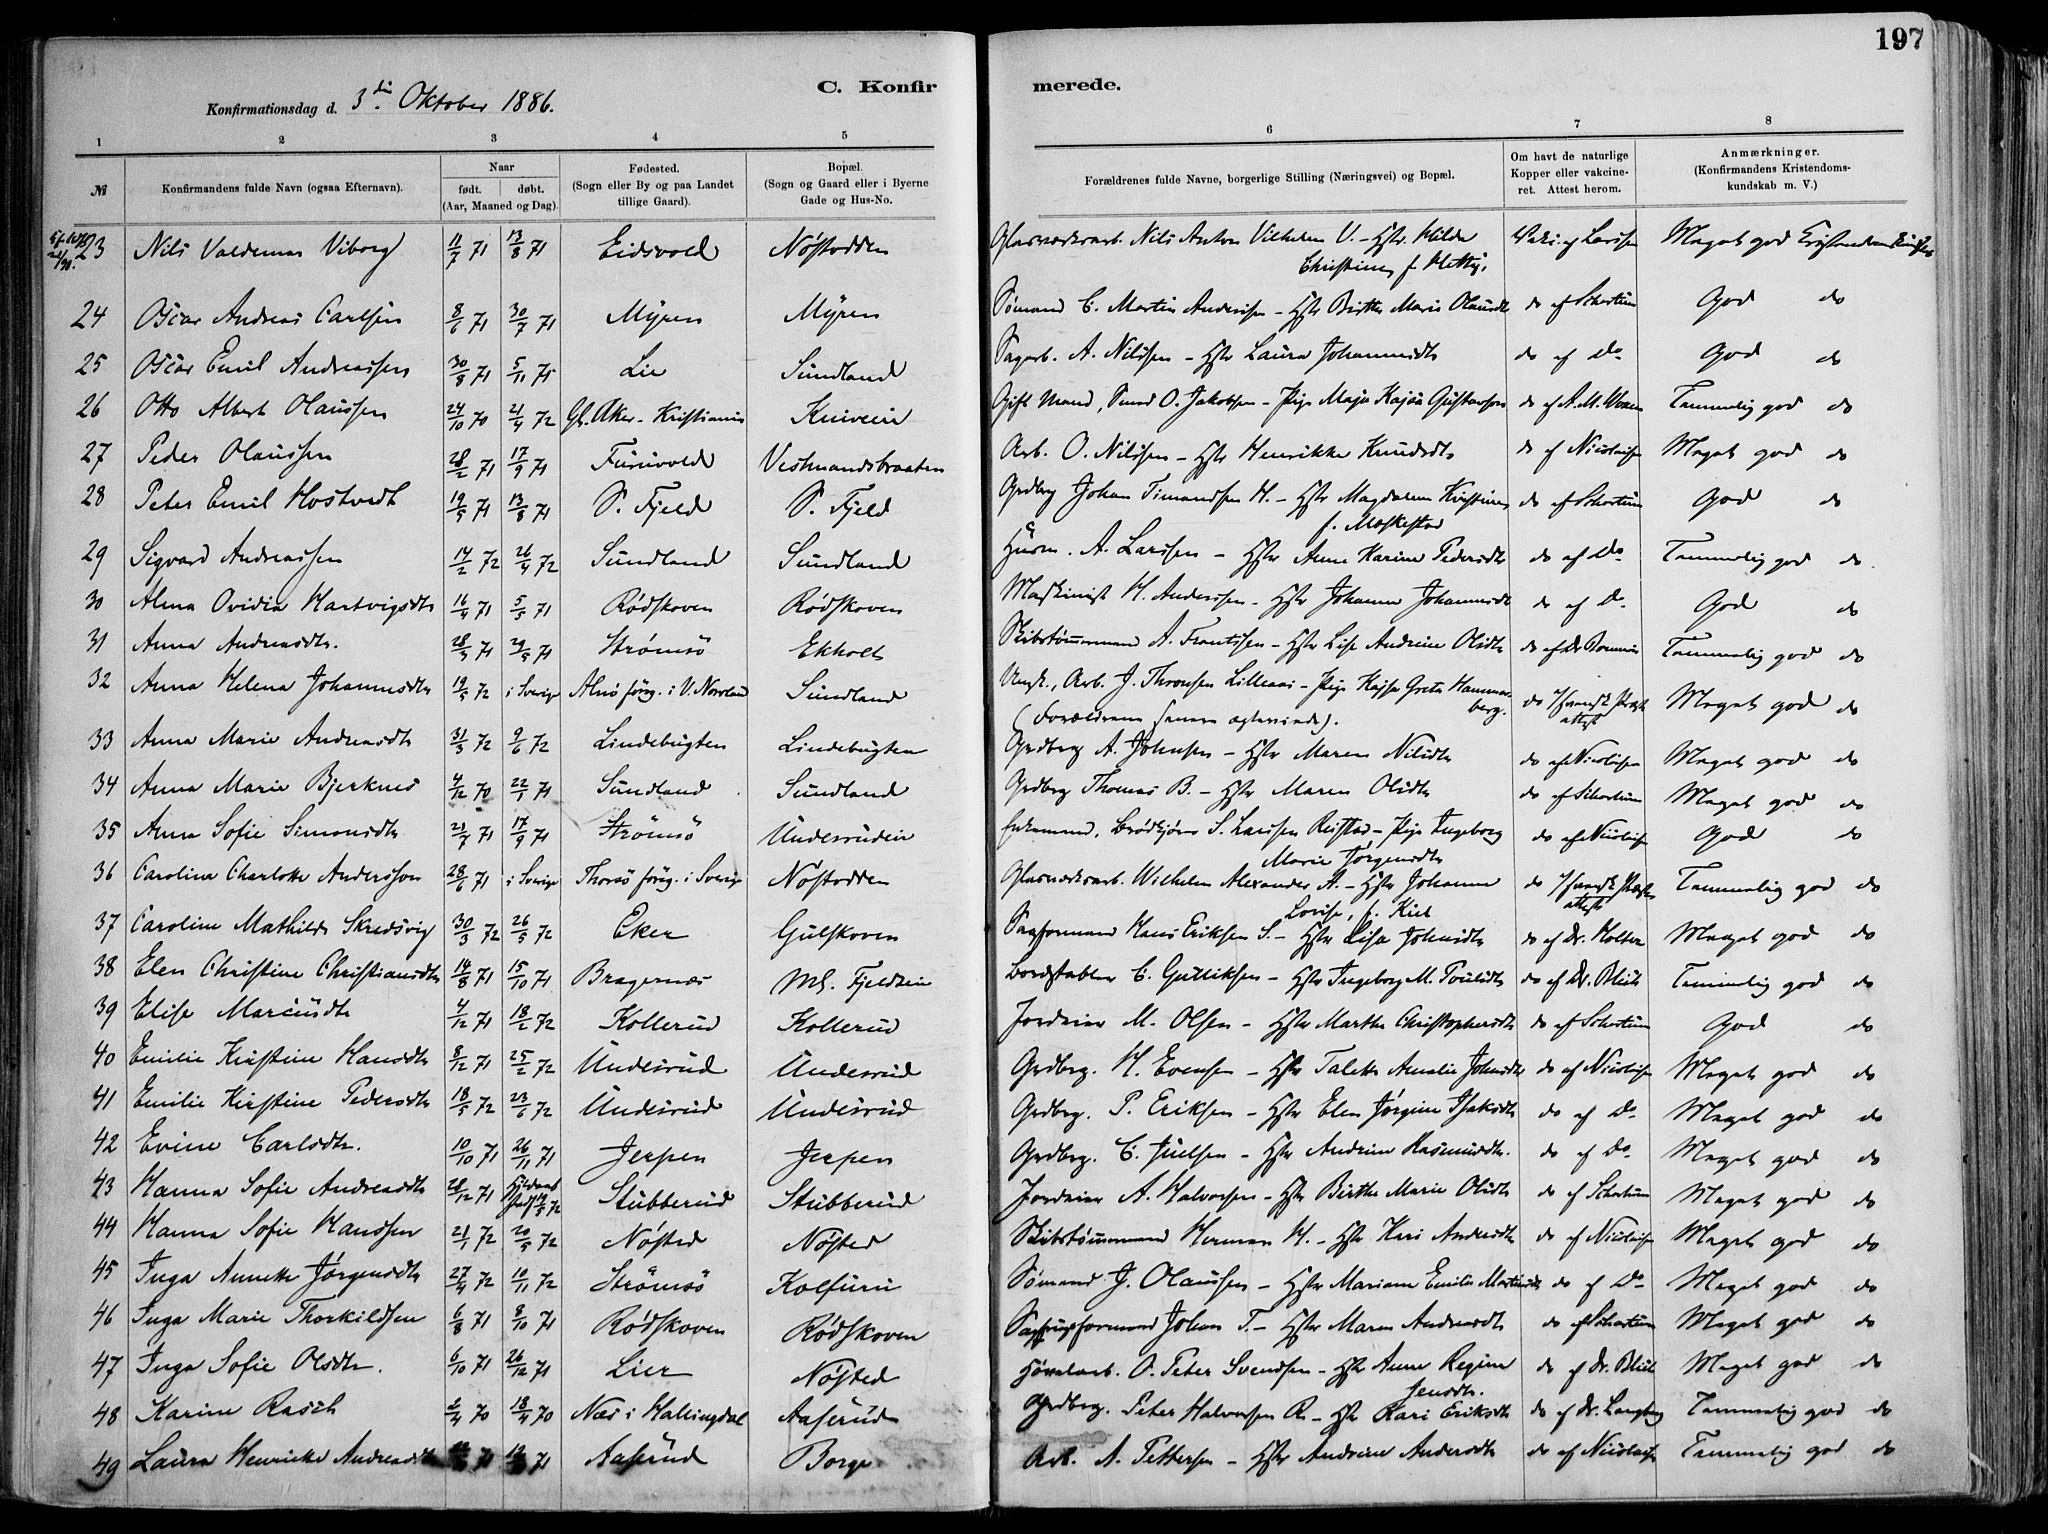 197
C. Konfirmerede.
Konfirmationsdag d. 3die Oktober 1886.
1 2 3 4 5 6 7 8
№ Konfirmandens fulde Navn (ogsaa Efternavn). Naar født. døbt. (Aar, Maaned og Dag). Fødested. (Sogn eller By og paa Landet tillige Gaard). Bopæl. (Sogn og Gaard eller i Byerne Gade og Hus-No. Forældrenes fulde Navne, borgerlige Stilling (Næringsvei) og Bopæl. Om havt de naturlige Kopper eller vakcineret. Attest herom. Anmærkninger. (Konfirmandens Kristendomskundskab m. V.)
23 Nils Valdemar Viborg 11/7 71 13/8 71 Eidsvold Nøstodden Glasværksarb. Nils Anton Vilhelm V. – Hstr. Hilda Christine f. Vak. af Larsen Meget god
24 Oscar Andreas Carlsen 8/6 71 30/7 71 Myren Myren Sømand C. Martin Andersen – Hstr Birthe Marie Olausdtr do af Schortum God do
25 Oscar Emil Andreassen 30/8 71 5/11 71 Lie Sundland Sagarb. A. Nilssen – Hstr Laura Johannesdtr do af Do God do
26 Otto Albert Olaussen 24/10 70 21/4 72 Gl. Aker - Kristiania Kniveien Gift Mand, Smed O. Jakobsen – Pige Maja Kajsa Gustavson do af A. M. Temmelig god do
27 Peder Olaussen 28/2 71 17/9 71 Furuvold Vestmandsbraaten Arb. O. Nilssen – Hstr Henrikke Knudsdtr do af Nicolaisen Meget god do
28 Peter Emil Hostvedt 19/5 71 13/8 71 S. Fjeld S. Fjeld Grdbrg Johan Simundsen H. – Hstr Magdalena Kristine f. Moskestad do af Schortum God do
29 Sigvard Andreassen 14/2 72 26/4 72 Sundland Sundland Husm. A. Larssen – Hstr Anne Karine Pedersdtr do af Do Temmelig god do
30 Alma Ovidia Hartvigsdtr 16/4 71 5/5 71 Rødskoven Rødskoven Maskinist H. Anderssen – Hstr Johanne Johannesdtr do af Do God do
31 Anna Andreasdtr. 28/3 71 29/5 71 Strømsø Ekholt Skibstømmermand A. Frantssen – Hstr Lise Andrine Olsdtr do af Dr Temmelig god do
32 Anna Helena Johannesdtr 19/5 72 i Sverige Alnö förs. i V. Norrland Sundland Ungk., Arb. J. Thronsen Lilleaas – Pige Kajsa Greta Hammarberg. (Forældrene senere ægteviede). do / svensk Præsteattest Meget god do
33 Anna Marie Andreasdtr 31/3 72 9/6 72 Lindebugten Lindebugten Grdbrg A. Johnsen – Hstr Maren Nilsdtr do af Nicolaisen Meget god do
34 Anna Marie Bjerknes 4/12 70 22/1 71 Sundland Sundland Grdbrg Thomas B. – Hstr Maren Olsdtr do af Schortum Meget god do
35 Anna Sofie Simonsdtr 21/7 71 17/9 71 Strømsø Underudeie Enkemand, Brødkjører S. Larssen Reistad – Pige Ingeborg Marie Jørgensdtr do af Nicolaisen God do
36 Carolina Charlotte Andersson 28/6 71 i Sverige Thorsö förs. i Sverige Nøstodden Glasværksarb. Wilhelm Alexander A. – Hstr Johanne Lovise, f. Kiel do / svensk Præsteattest Temmelig god do
37 Caroline Mathilde Skredsvig 30/3 72 26/5 72 Eker Gulskoven Sagformand Hans Eriksen S. – Hstr Lisa Johnsdtr do af Dr. Holter Meget god do
38 Elen Christine Christiansdtr 14/8 71 15/10 71 Bragernæs Ml. Fjeldseie Bordstabler C. Gulliksen – Hstr Ingeborg M. Poulsdtr do af Dr. Blich Temmelig god do
39 Elise Mariusdtr 4/12 71 18/2 72 Kollerud Kollerud Jordeier M. Olsen – Hstr Marthe Christophersdtr do af Schortum God do
40 Emilie Kirstine Hansdtr 8/12 71 25/2 72 Underud Underud Grdbrg. H. Evensen – Hstr Talette Amalie Johnsdtr do af Nicolaisen Meget god do
41 Emilie Kirstine Pedersdtr 18/5 72 23/6 72 Underud Underud Grdbrg. P. Eriksen – Hstr Elen Jørgine Isaksdtr do af Do Meget god do
42 Evine Carlsdtr. 10/10 71 26/11 71 Jerpen Jerpen Grdbrg. C. Juelsen – Hstr Andrine Rasmusdtr. do af Do Meget god do
43 Hanna Sofie Andreasdtr 28/12 71 Hjdøbt 19/5 72 Stubberud Stubberud Jordeier A. Halvorsen – Hstr Birthe Marie Olsdtr do af Schortum Meget god do
44 Hanna Sofie Hanssen 21/1 72 20/5 72 Nøsted Nøsted Skibstømmermand Herman H. – Hstr Kari Andersdtr do af Nicolaisen Meget god do
45 Inga Annette Jørgensdtr 27/4 72 10/11 72 Strømsø Kolfuru Sømand J. Olaussen – Hstr Mariane Emilie Martinsdtr do af Do Meget god do
46 Inga Marie Thorkildsen 6/8 71 8/10 71 Rødskoven Rødskoven Sagbrugsformand Johan T. – Hstr Maren Andreasdtr do af Schortum Meget god do
47 Inga Sofie Olsdtr. 6/10 71 26/12 71 Lier Nøsted Høvelarb. O. Peter Svendsen – Hstr Anne Regine Jensdtr. do af Dr. Blich Meget god do
48 Karine Rasch 2/4 70 18/4 70 Næs i Hallingdal Aaserud Grdbrg. Peter Halvorsen R. – Hstr Kari Eriksdtr do af Dr. Langberg Temmelig god do
49 Laura Henrikke Andreasdtr 70 71 Aaserud Borge Arb. A. Pettersen – Hstr Andrine Andersdtr do af Nicolaisen Temmelig god do